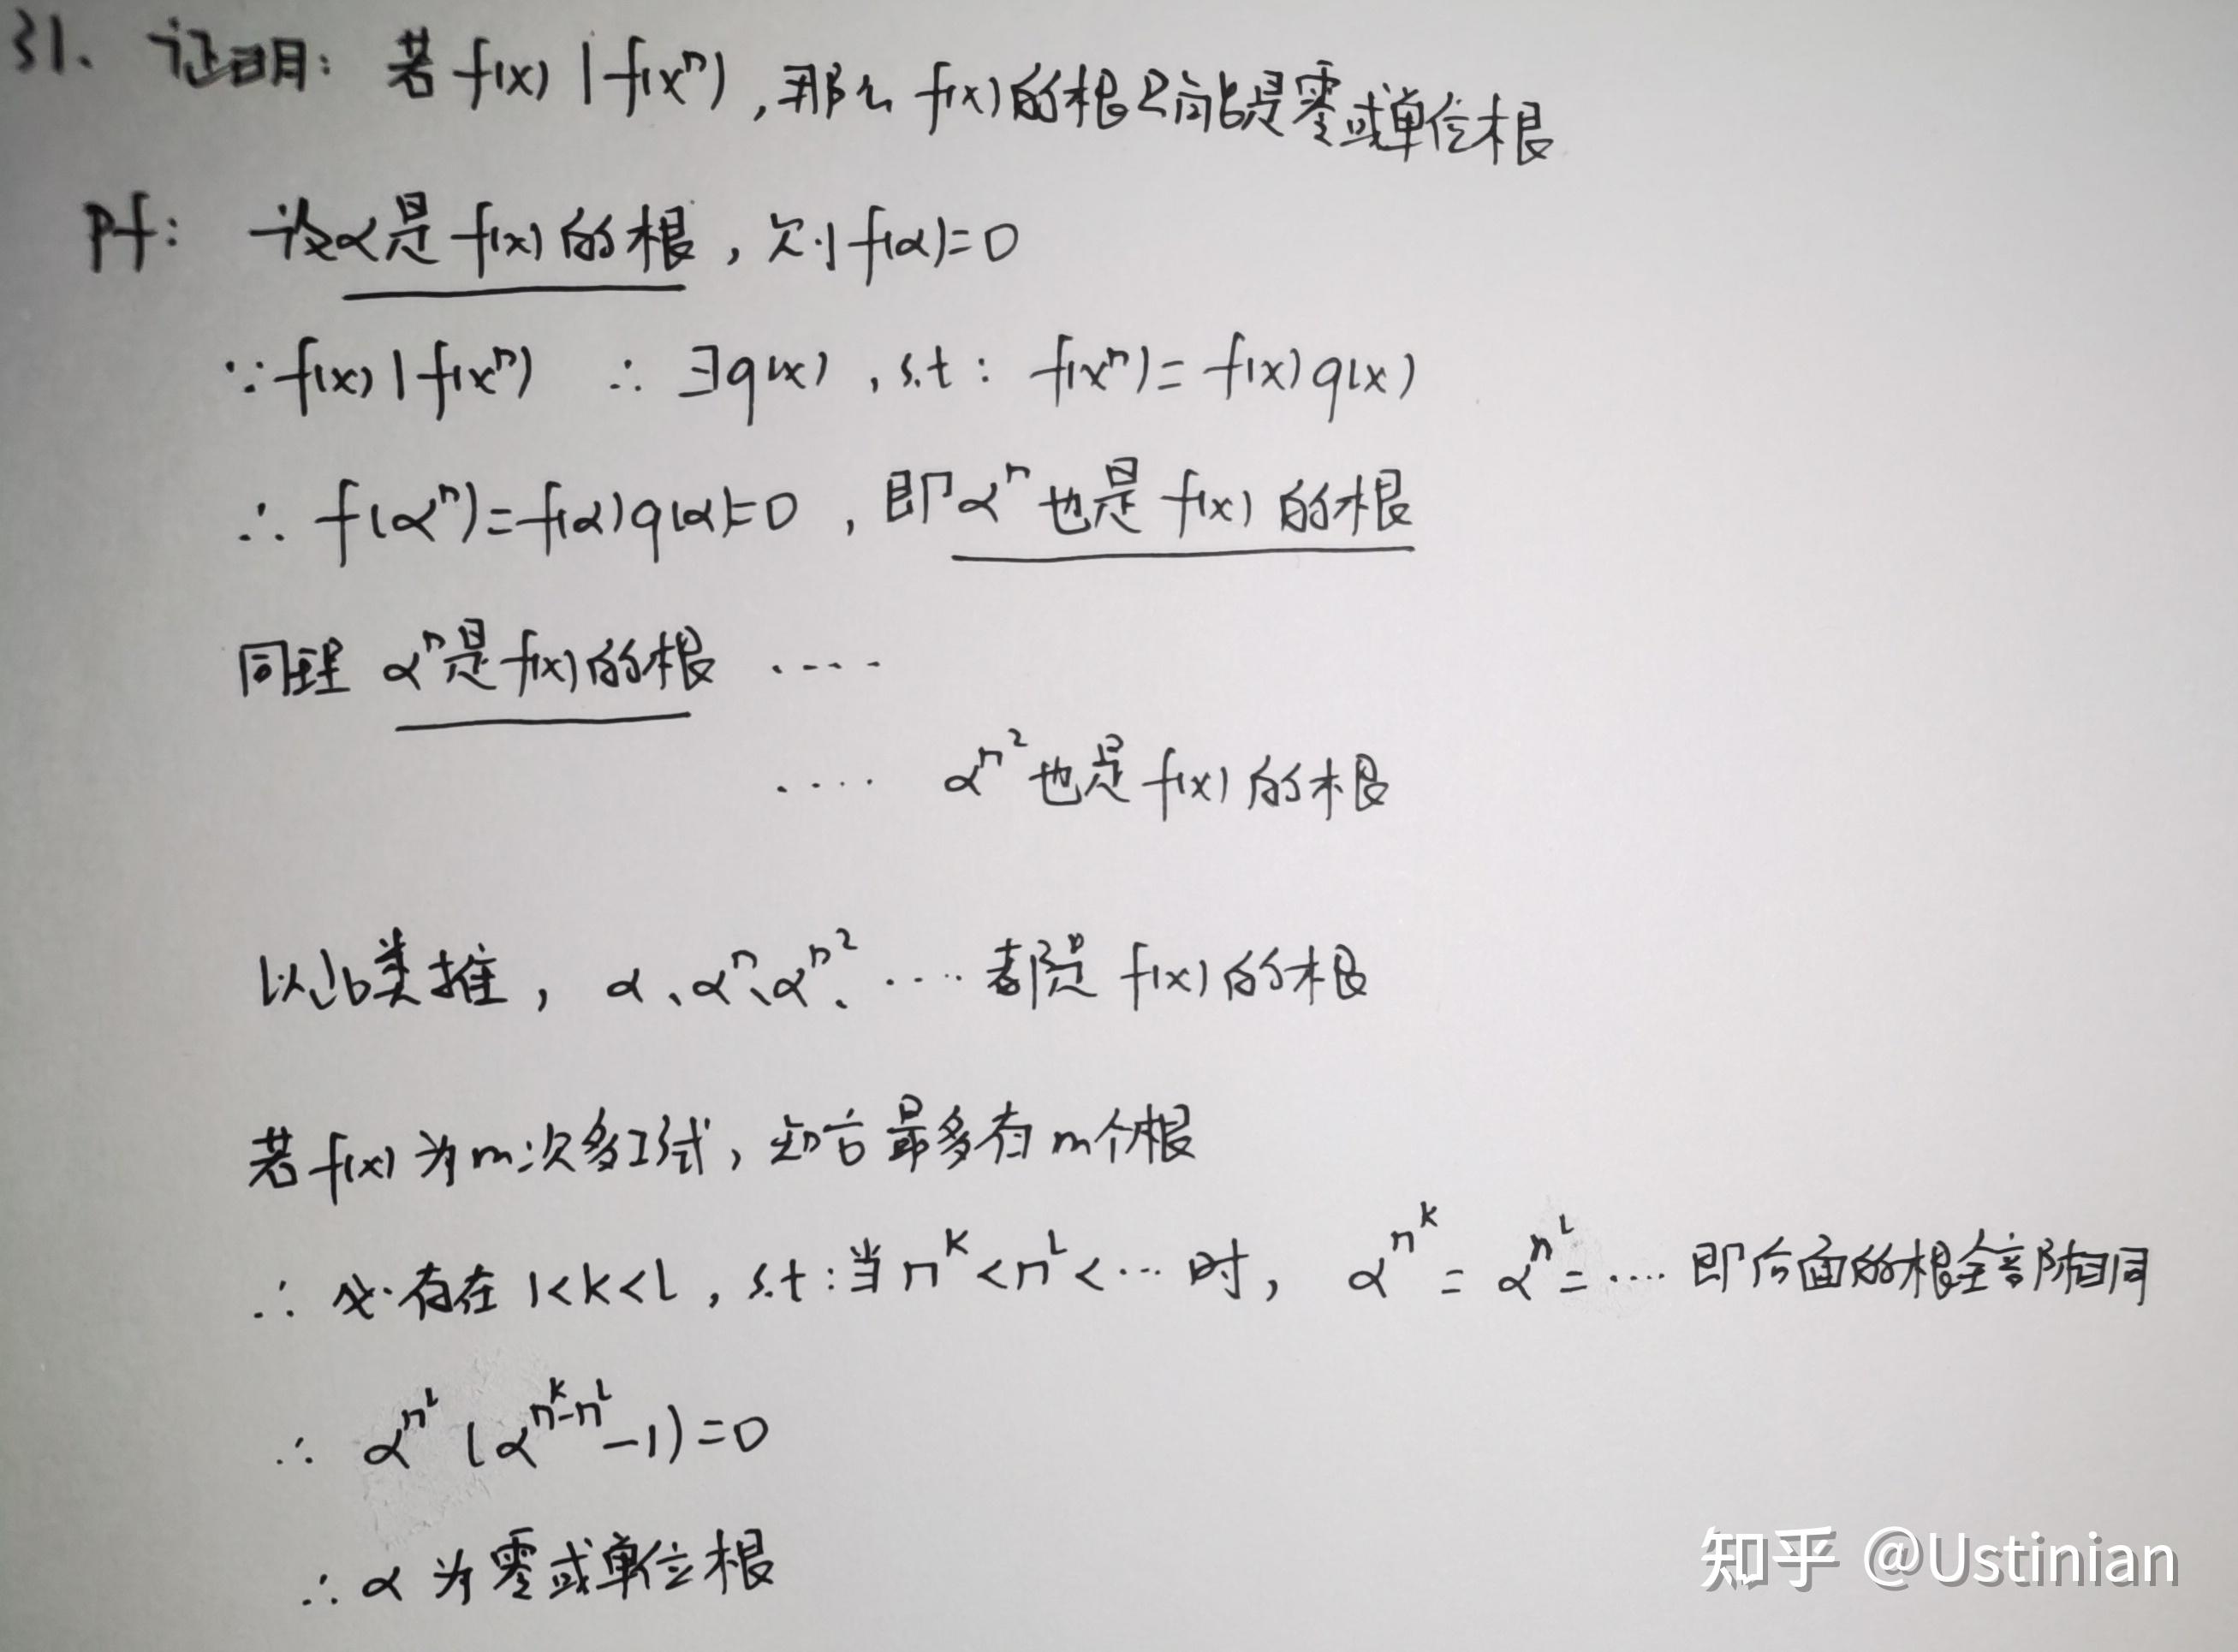 31. 证明: 若 f(x) | f(xⁿ), 那么 f(x) 的根只能是零或单位根
Pf: 设α是 f(x) 的根, 则 f(α)=0
∵ f(x) | f(xⁿ) ∴ ∃q(x), s.t: f(xⁿ)= f(x) q(x)
∴ f(αⁿ)=f(α)q(α)=0, 即αⁿ也是 f(x) 的根
同理 αⁿ是 f(x) 的根 ····
···· α^{n^2} 也是 f(x) 的根
以此类推, α、αⁿ、α^{n^2}、···· 都是 f(x) 的根
若 f(x) 为 m次多项式, 知它最多有 m个根
∴ 必存在 1<k<l, s.t: 当 n^k < n^l < ··· 时, α^{n^k} = α^{n^l} = ···· 即后面的根全部相同
∴ α^{n^l} (α^{n^k-n^l} -1)=0
∴ α 为零或单位根
知乎 @Ustinian